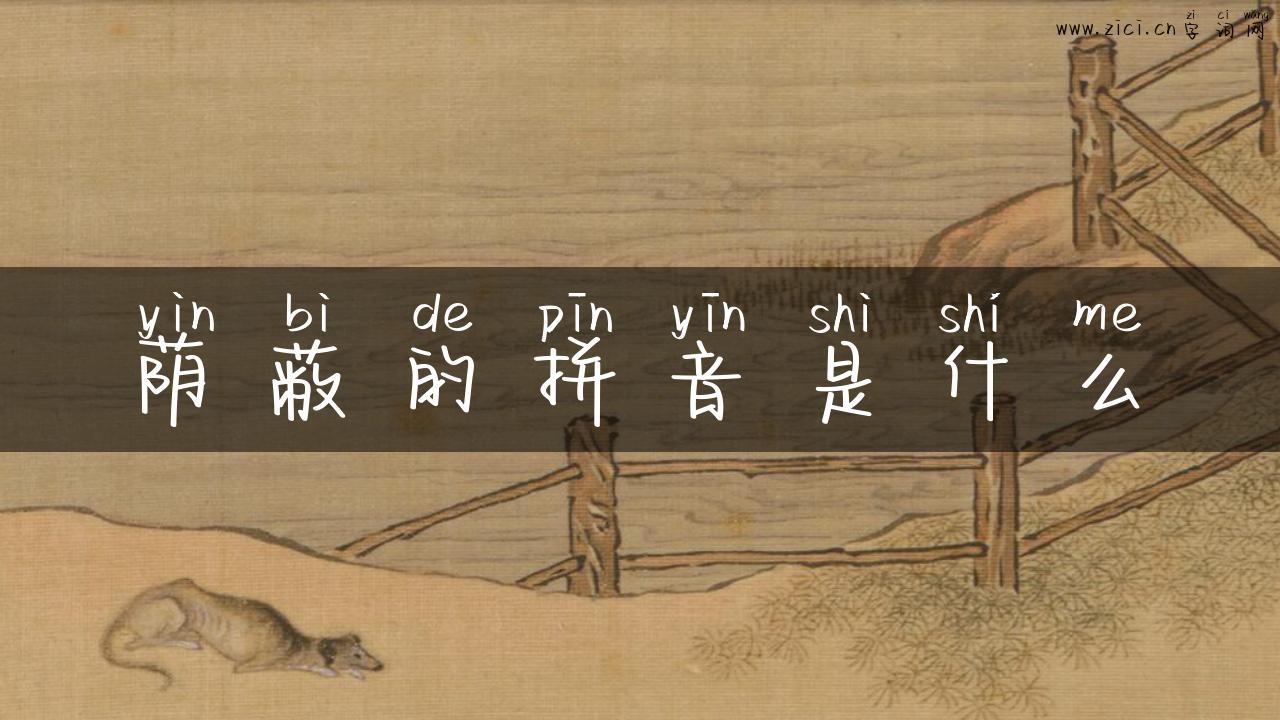 zì cí wǎng
www.zici.cn 字词网
yìn bì de pīn yīn shì shí me
荫蔽的拼音是什么